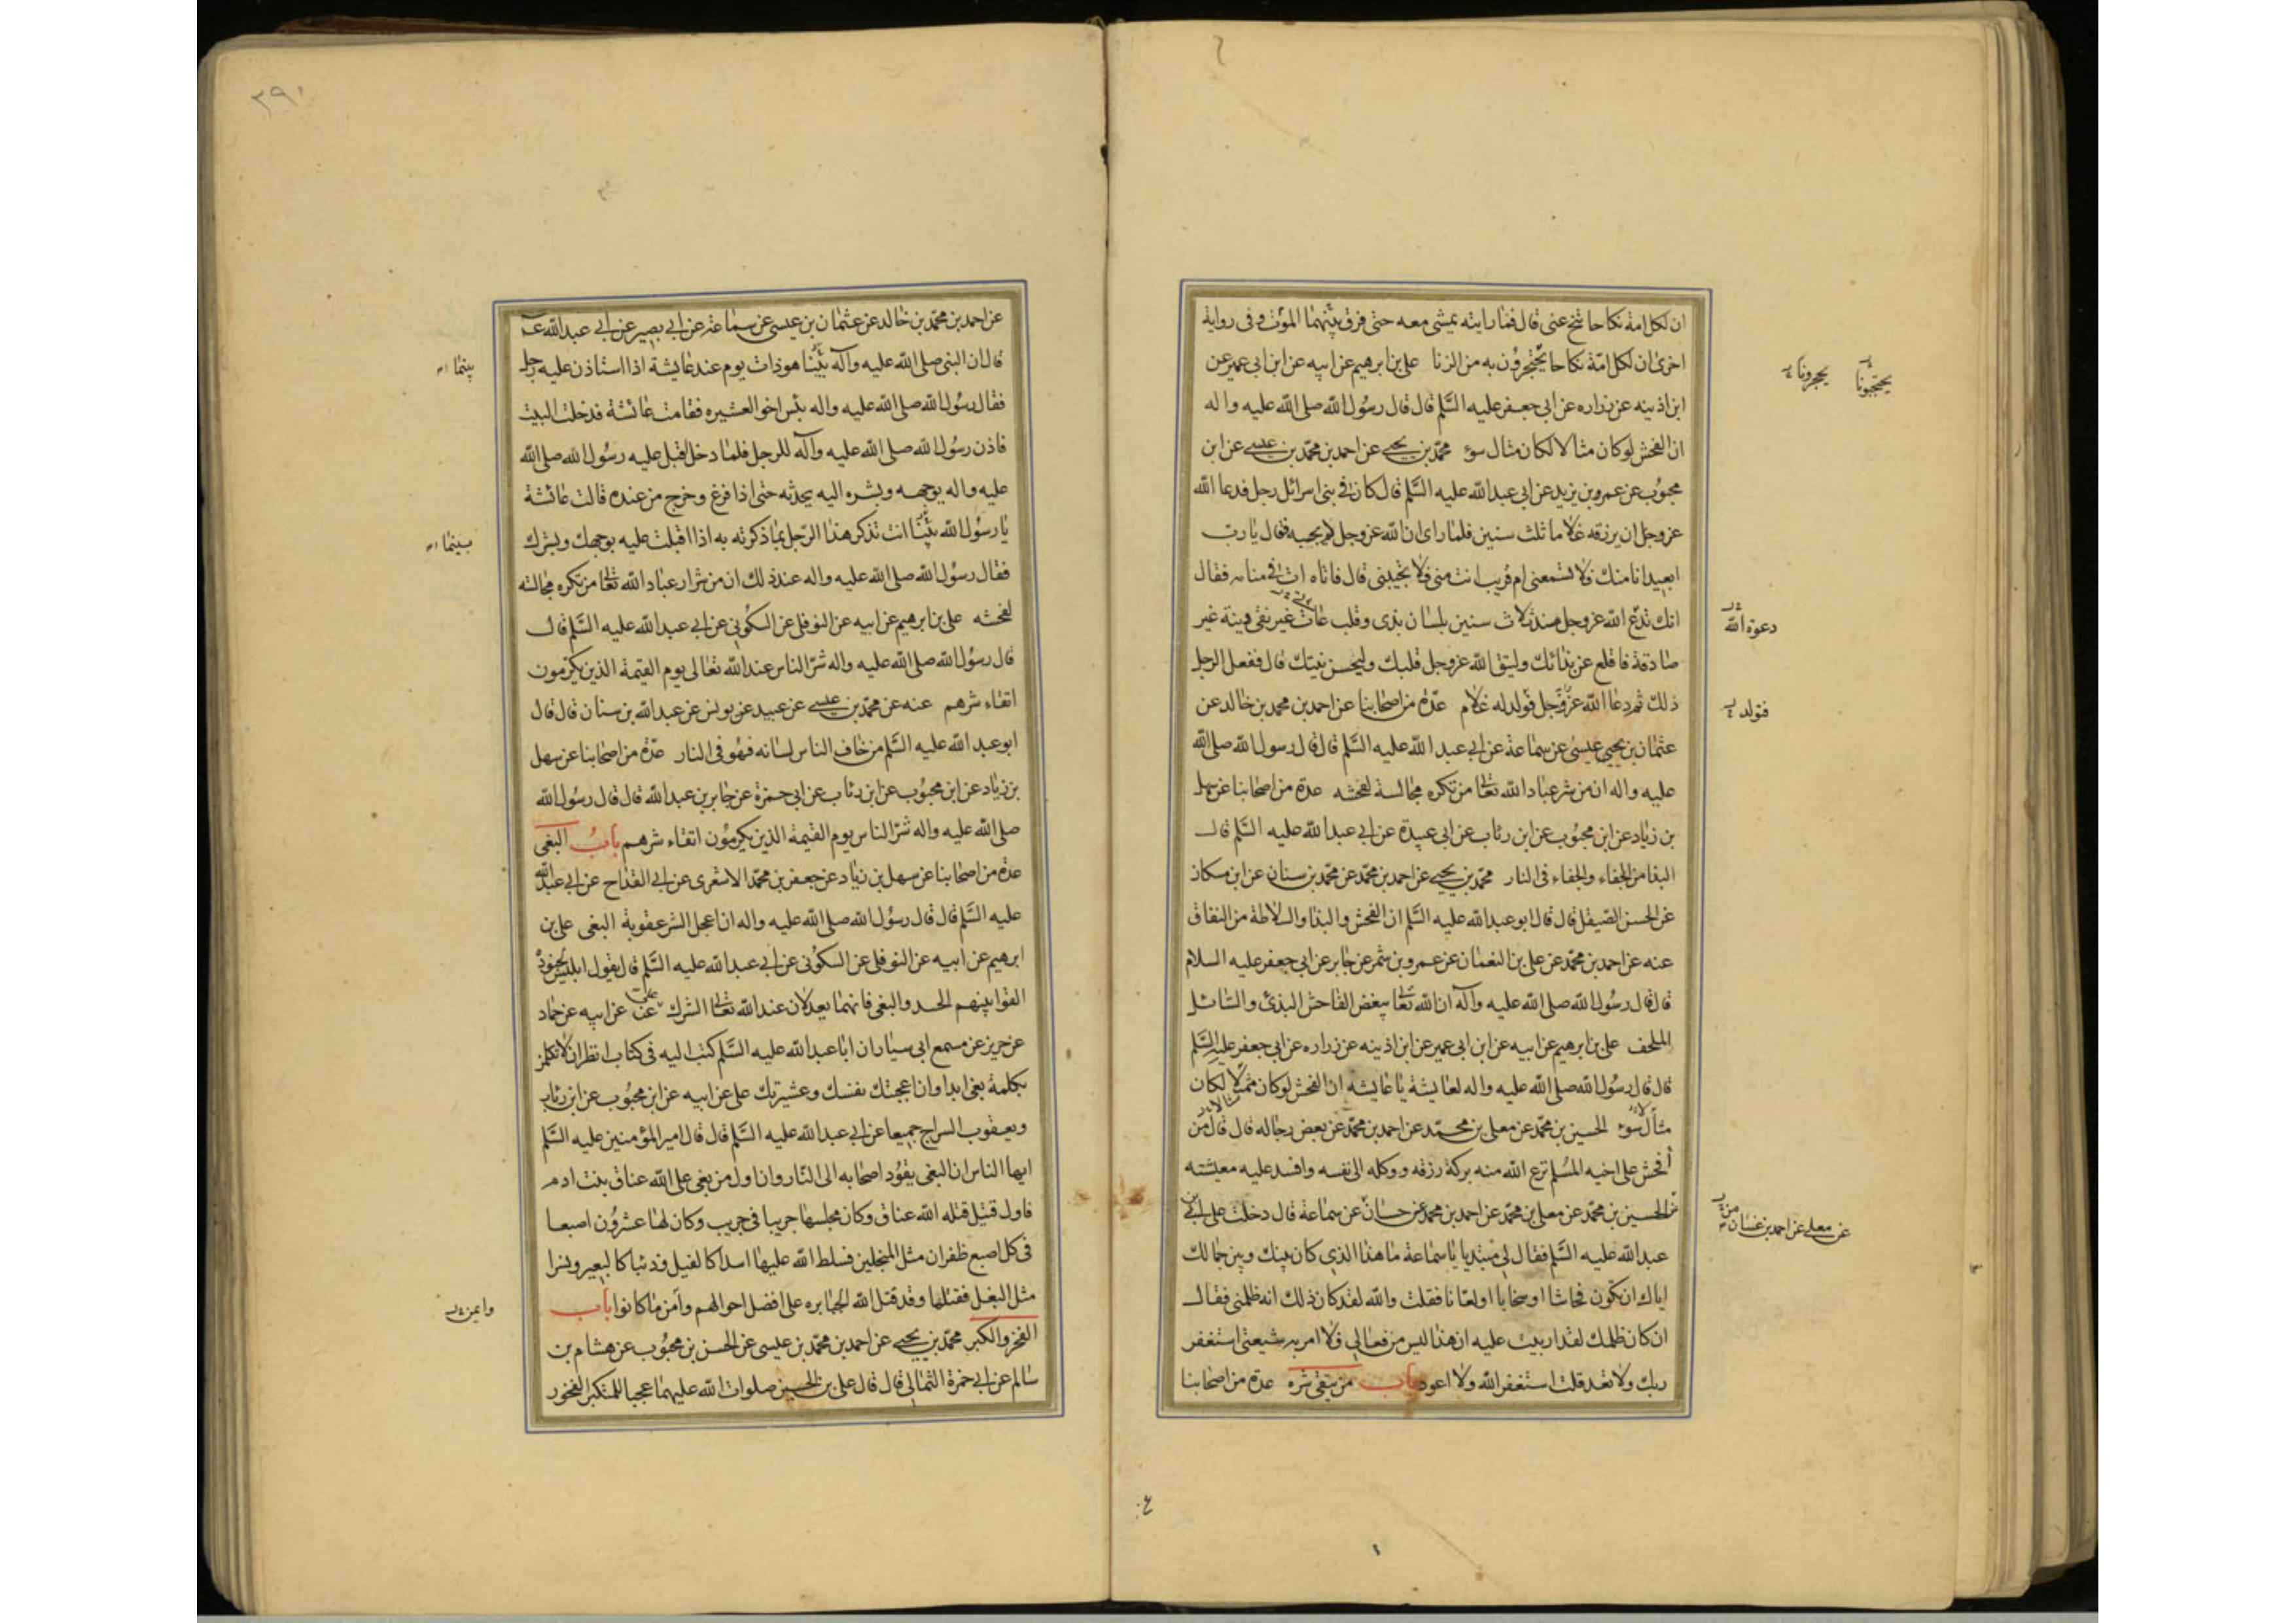 ان لكل امة نكاحا تنح عنى قال فما رايته يمشى معه حتى فرق بينهما الموت وفى رواية
اخرى ان لكل امّة نكاحا يحتجزون به من الزنا على بن ابرهيم عن ابيه عن ابن ابى عمير عن
ابن اذينه عن زراره عن ابى جعفر عليه السَّلم قال قال رسُول الله صلى الله عليه واله
ان الفحش لوكان مثالا لكان مثال سوء محمّد بن يحيى عن احمد بن محمّد بن عيسى عن ابن
محبُوب عن عمرو بن يزيد عن ابى عبدالله عليه السَّلم قال كان فى بنى اسرائل رجل فدعا الله
عزوجل ان يرزقه غلاما ثلث سنين فلما راى ان الله عزوجل لا يجيبه فقال يا رب
ابعيد انا منك فلا تسمعنى ام قريب انت منى فلا تجيبنى قال فاتاه ات فى منامه فقال
انك تدع الله عزوجل منذ ثلاث سنين بلسان بذى وقلب عات غير نقى ونية غير
صادقة فاقلع عن بذائك وليتق الله عزوجل قلبك وليحسن نيتك قال ففعل الرجل
ذلك ثم دعا الله عزوجل فولد له غلام عدّة من اصحابنا عن احمد بن محمد بن خالد عن
عثمان بن يحيى عيسى عن سماعة عن ابى عبدالله عليه السَّلم قال قال رسول الله صلى الله
عليه واله ان من شر عباد الله تعالى من تكره مجالسة لفحشه عدة من اصحابنا عن سهل
بن زياد عن ابن محبُوب عن ابن رئاب عن ابى عبيدة عن ابى عبدالله عليه السَّلم قال
البذا من الجفاء والجفاء فى النار محمّد بن يحيى عن احمد بن محمّد عن محمّد بن سنان عن ابن مسكان
عن الحسن الصّيقل قال قال ابو عبدالله عليه السَّلم ان الفحش والبذا والسلاطة من النفاق
عنه عن احمد بن محمّد عن على بن النعمان عن عمرو بن شمر عن جابر عن ابى جعفر عليه السلام
قال قال رسُول الله صلى الله عليه وآله ان الله تعالى يبغض الفاحش البذئ والسّائل
الملحف على بن ابرهيم عن ابيه عن ابن ابى عمير عن ابن اذينه عن زراره عن ابى جعفر عليه السَّلم
قال قال رسُول الله صلى الله عليه واله لعايشة يا عايشه ان الفحش لوكان ممثلا لكان
مثال سوء الحسين بن محمّد عن معلى بن محمّد عن احمد بن محمّد عن بعض رجاله قال قال من
أفحش على اخيه المُسلم نزع الله منه بركة رزقه ووكله الى نفسه وافسد عليه معيشته
عن الحسين بن محمّد عن معلى بن محمّد عن احمد بن محمد عن حسان عن سماعة قال دخلت على ابى
عبدالله عليه السَّلم فقال لى مبتديا يا سماعة ما هذا الذى كان بينك وبين جمالك
اياك ان تكون فحاشا او سخابا او لعّانا فقلت والله لقد كان ذلك انه ظلمنى فقال
ان كان ظلمك لقد اربيت عليه ان هذا ليس من فعالى ولا امر به شيعتى استغفر
ربك ولا تعد قلت استغفر الله ولا اعود باب من يتقى شره عدة من اصحابنا
يحتجّبونا
يحجزونا
دعوة الله
فتولد
عن معلى عن احمد بن غسان
٢٩١
عن احمد بن محمّد بن خالد عن عثمان بن عيسى عن سماعة عن ابى بصير عن ابى عبدالله ع
قال ان النبى صلى الله عليه وآله بَيْنا هو ذات يوم عند عايشة اذا استاذن عليه رجل
فقال رسُول الله صلى الله عليه واله بئس اخو العشيره فقامت عائشة فدخلت البيت
فاذن رسُول الله صلى الله عليه وآله للرجل فلما دخل اقبل عليه رسُول الله صلى الله
عليه واله بوجهه وبشره اليه يحدثه حتى اذا فرغ وخرج من عنده قالت عائشة
يا رسُول الله بَيْنا انت تذكر هذا الرّجل بما ذكرته به اذا اقبلت عليه بوجهك وبشرك
فقال رسُول الله صلى الله عليه واله عند ذلك ان من شرار عباد الله تعالى من تكره مجالسته
لفحشه على بن ابرهيم عن ابيه عن النوفلى عن السكُونى عن ابى عبدالله عليه السَّلم قال
قال رسُول الله صلى الله عليه واله شرّ الناس عند الله تعالى يوم القيمة الذين يكرمون
اتقاء شرهم عنه عن محمّد بن عيسى عن عبيد عن يونس عن عبدالله بن سنان قال قال
ابو عبدالله عليه السَّلم من خاف الناس لسانه فهو فى النار عدّة من اصحابنا عن سهل
بن زياد عن ابن محبُوب عن ابن رئاب عن ابى حمزة عن جابر بن عبدالله قال قال رسُول الله
صلى الله عليه واله شرّ الناس يوم القيمة الذين يكرمُون اتقاء شرهم بابُ البغى
عدة من اصحابنا عن سهل بن زياد عن جعفر بن محمّد الاشعرى عن ابى القداح عن ابى عبدالله
عليه السَّلم قال قال رسُول الله صلى الله عليه واله ان اعجل الشر عقوبة البغى على بن
ابرهيم عن ابيه عن النوفلى عن السكُونى عن ابى عبدالله عليه السَّلم قال يقول ابليس لجنوده
القوا بينهم الحسد والبغى فانهما يعدلان عند الله تعالى الشرك على عن ابيه عن حماد
عن حريز عن مسمع ابى سيار ان ابا عبدالله عليه السَّلم كتب اليه فى كتاب انظر ان لا تكلمن
بكلمة بغى ابدا وان اعجبتك نفسك وعشيرتك على عن ابيه عن ابن محبُوب عن ابن رئاب
ويعقوب السراج جميعا عن ابى عبدالله عليه السَّلم قال قال امير المؤمنين عليه السَّلم
ايها الناس ان البغى يقُود اصحابه الى النّار وان اول من بغى على الله عناق بنت ادم
فاول قتيل قتله الله عناق وكان مجلسها جريبا فى جريب وكان لها عشرُون اصبعا
فى كل اصبع ظفران مثل المنجلين فسلط الله عليها اسدا كالفيل وذئبا كالبعير ونسرا
مثل البغل فقتلها وقد قتل الله الجبابره على افضل احوالهم وآمن ما كانوا باب
الفخر والكبر محمّد بن يحيى عن احمد بن محمّد بن عيسى عن الحسن بن محبُوب عن هشام بن
سالم عن ابى حمزة الثمالى قال قال على بن الحسين صلوات الله عليهما عجبا للمتكبر الفخور
بينما
بينما
وايمن